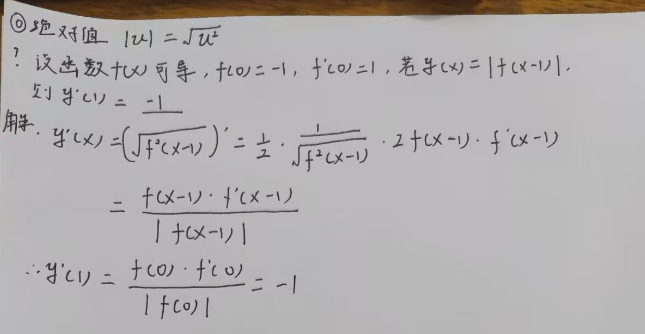 ⓪绝对值 |u| = √u²
? 设函数f(x)可导, f(0)=-1, f'(0)=1, 若y(x)=|f(x-1)|.
则 y'(1) = -1
解. y'(x) = (√f²(x-1))' = 1/2 · 1/√f²(x-1) · 2f(x-1) · f'(x-1)
= f(x-1)·f'(x-1) / |f(x-1)|
∴y'(1) = f(0)·f'(0) / |f(0)| = -1